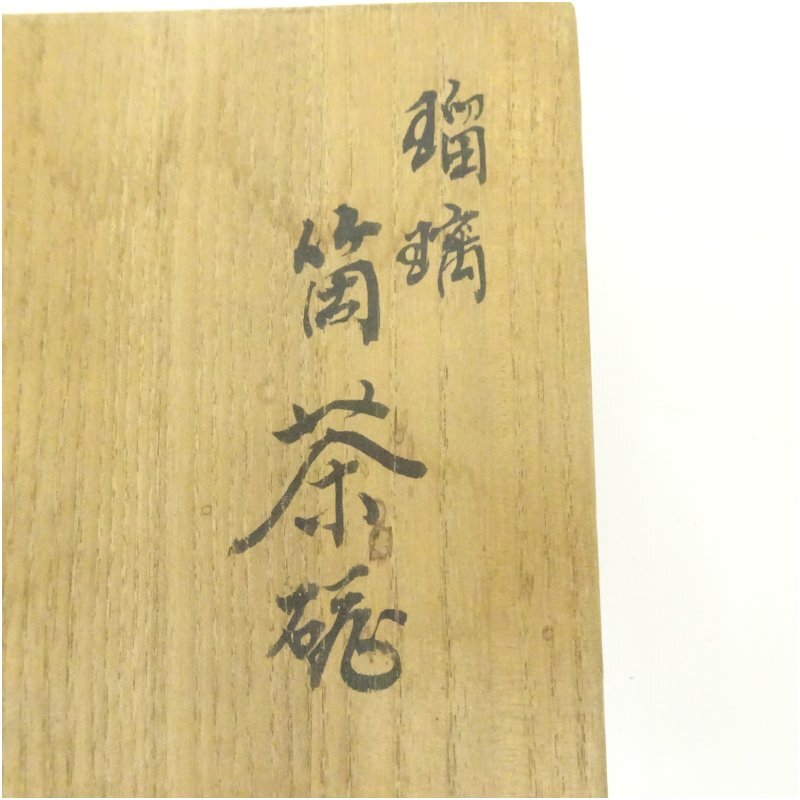 瑠璃
筒茶碗